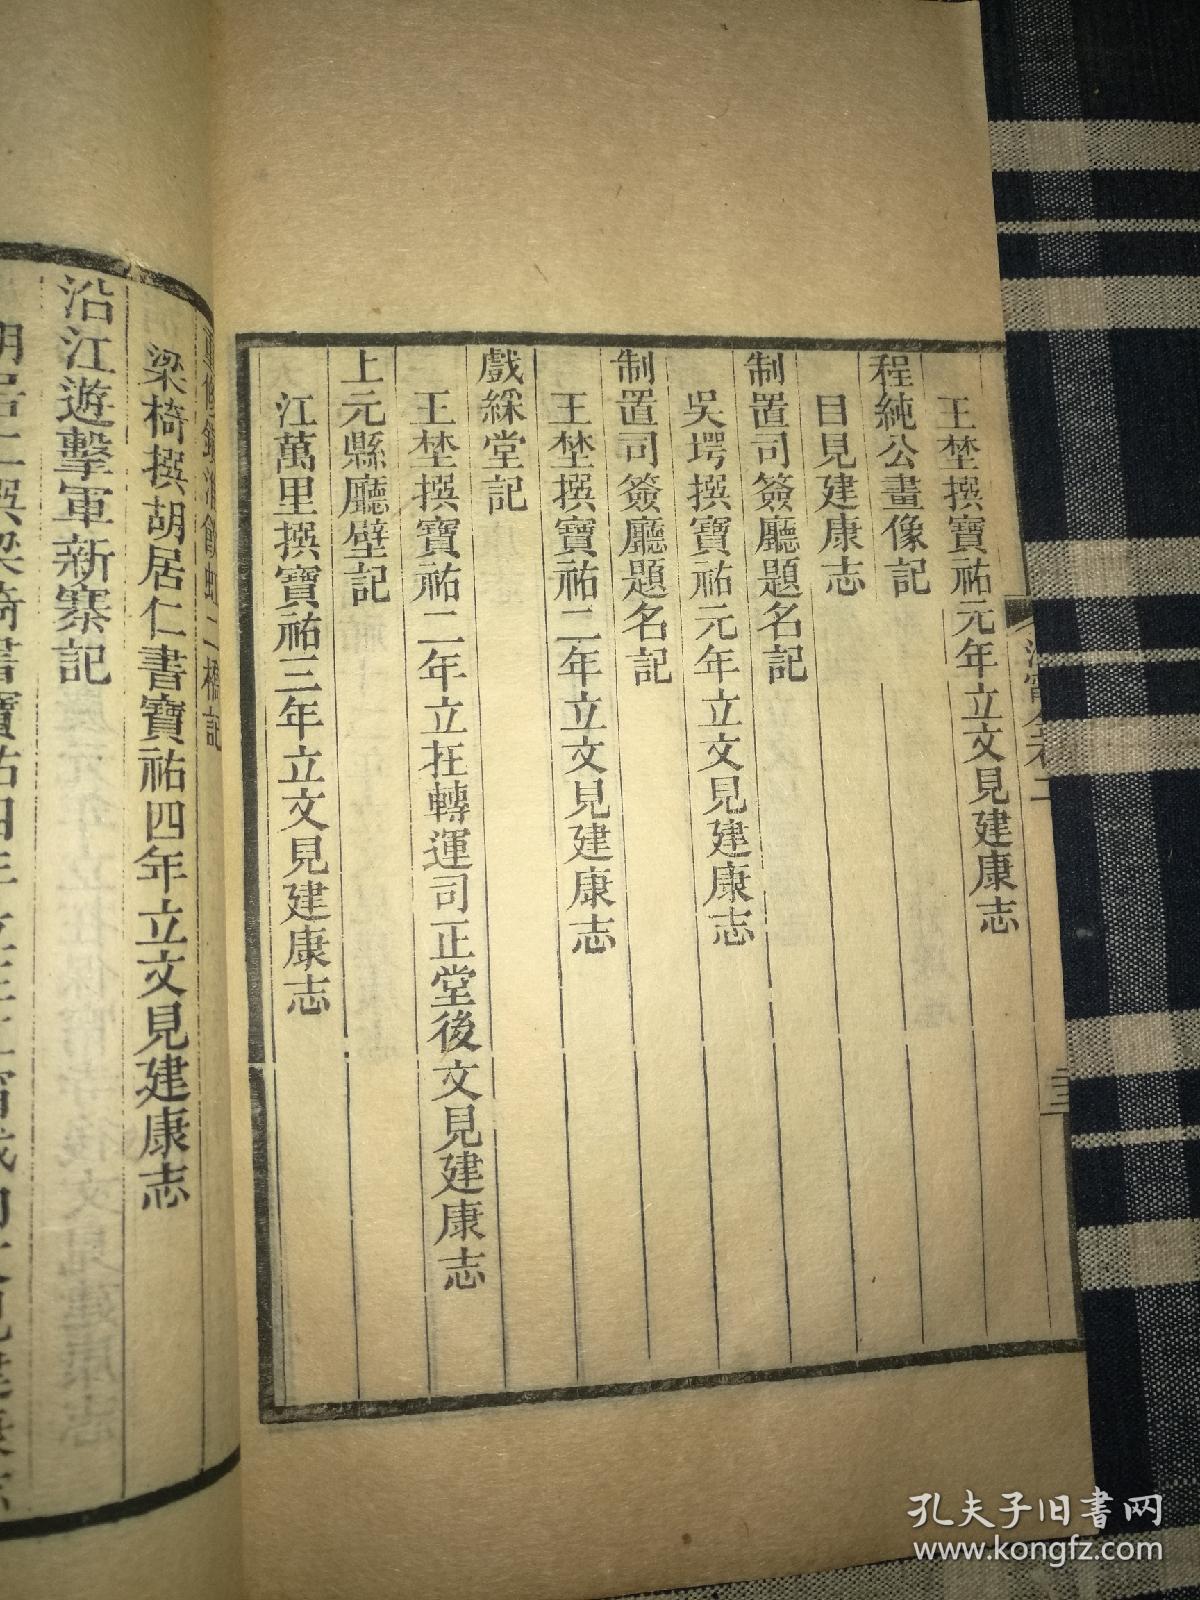 王埜撰寶祐元年立文見建康志
程純公畫像記
目見建康志
制置司簽廳題名記
吳堮撰寶祐元年立文見建康志
制置司簽廳題名記
王埜撰寶祐二年立文見建康志
戲綵堂記
王埜撰寶祐二年立在轉運司正堂後文見建康志
上元縣廳壁記
江萬里撰寶祐三年立文見建康志
二橋記
梁椅撰胡居仁書寶祐四年立文見建康志
沿江遊擊軍新寨記
胡居仁撰梁椅書寶祐四年立
孔夫子旧书网
www.kongfz.com